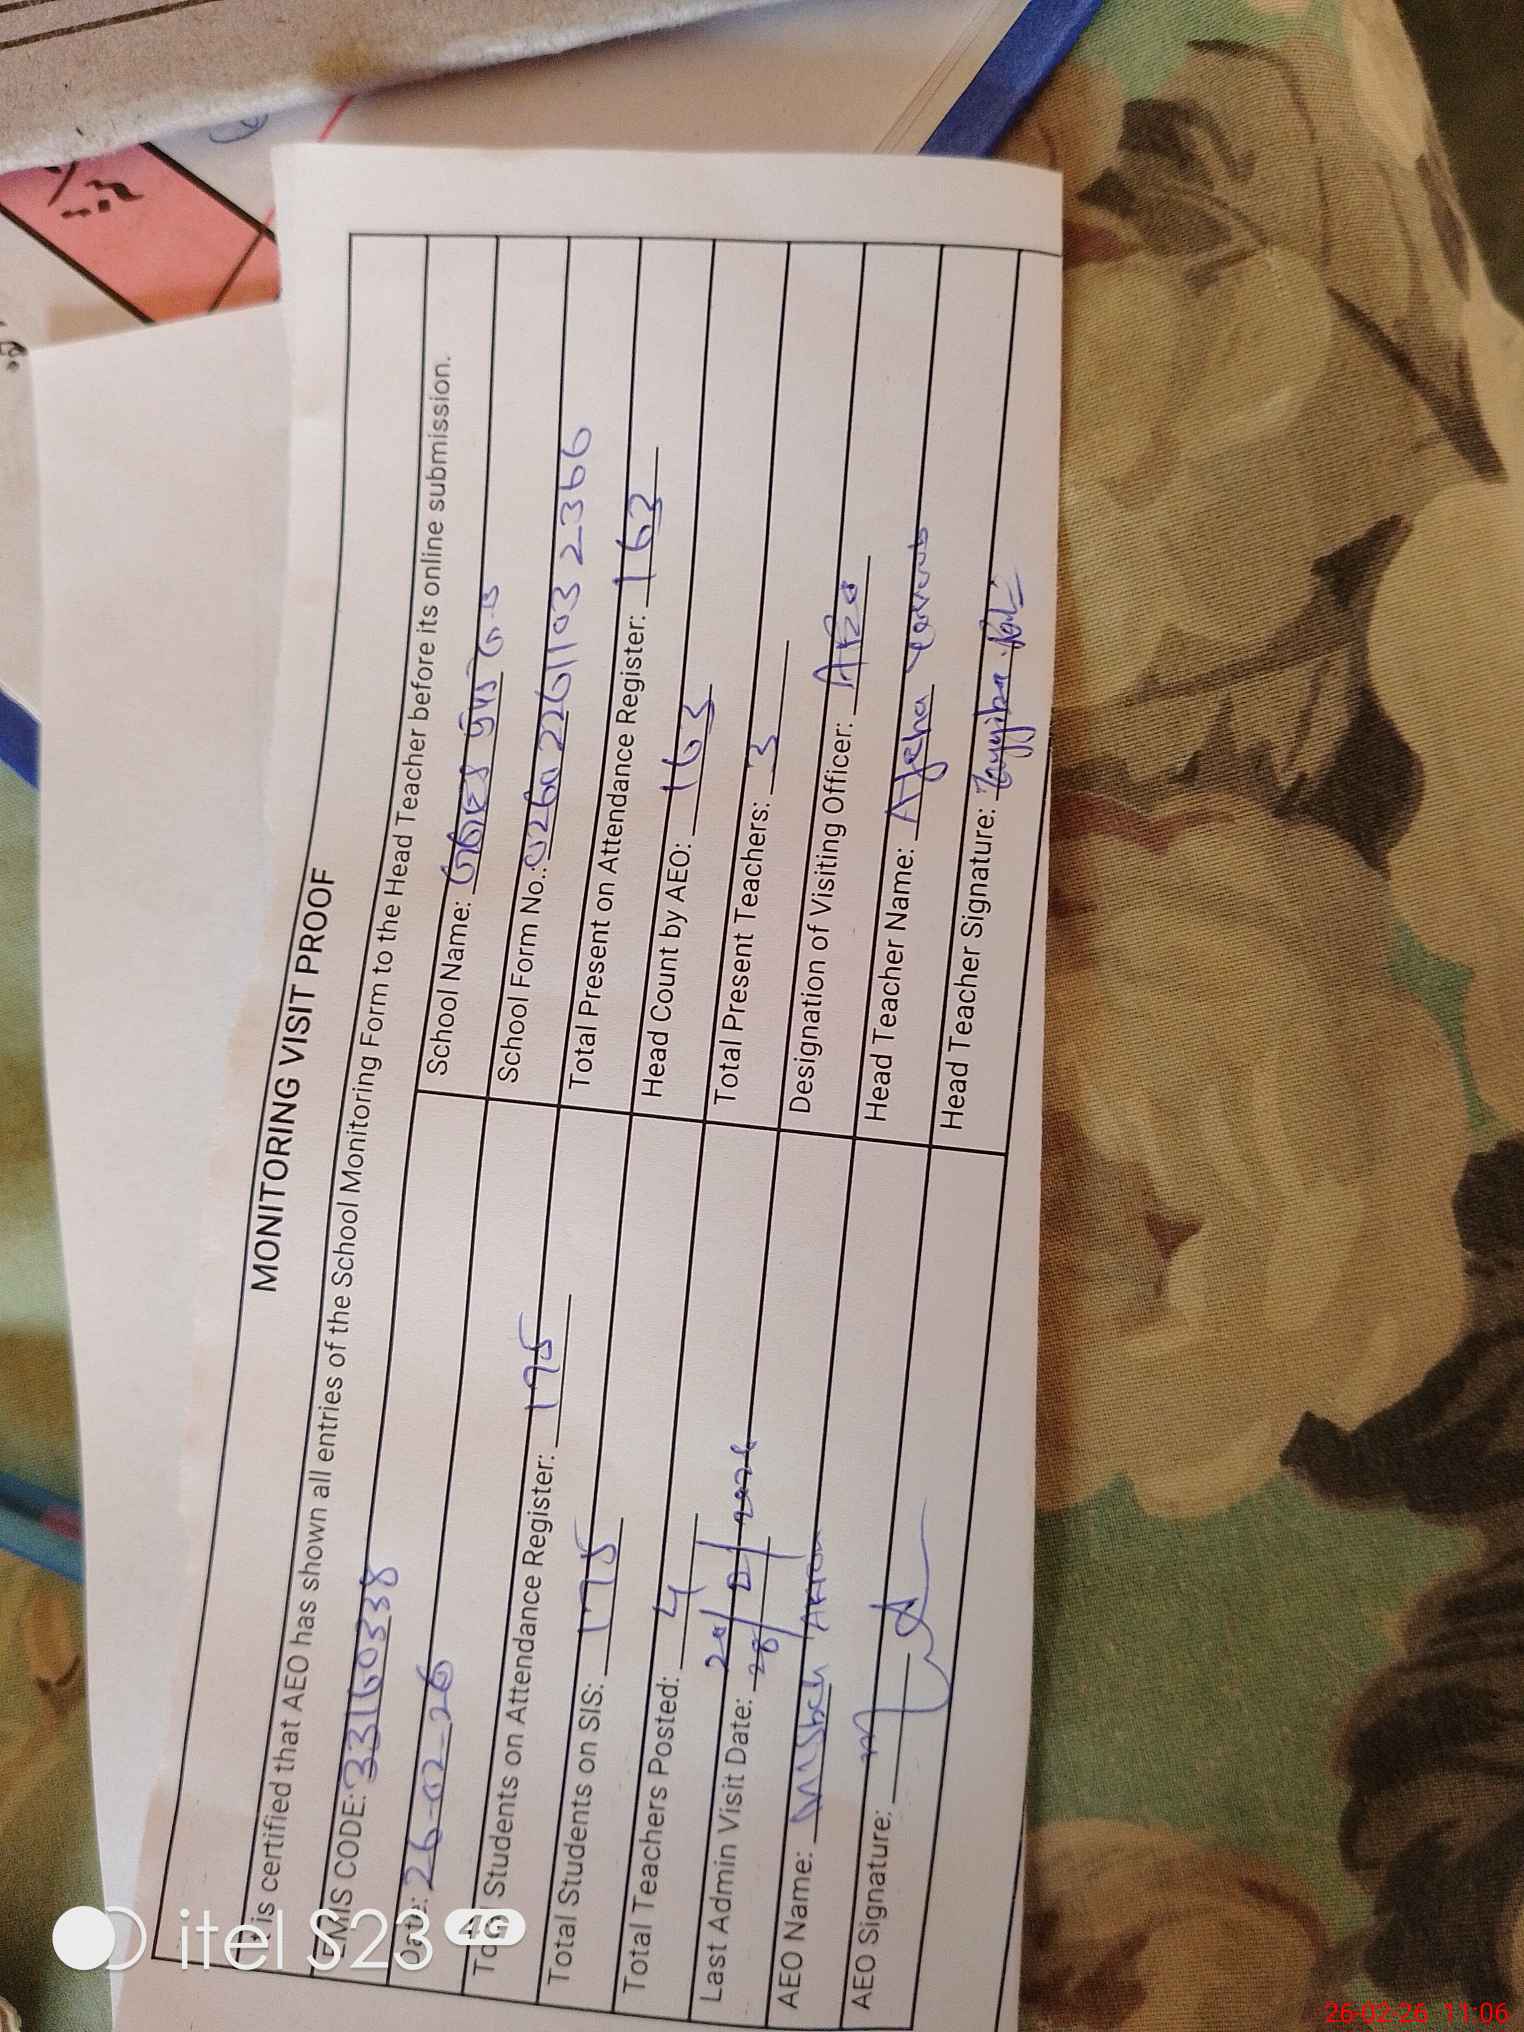 MONITORING VISIT PROOF
is certified that AEO has shown all entries of the School Monitoring Form to the Head Teacher before its online submission.
EMIS CODE: 33160338
School Name: GGES
Date: 26-02-26
School Form No.: 026022611032366
Total Students on Attendance Register: 175
Total Present on Attendance Register: 163
Total Students on SIS: 175
Head Count by AEO: 163
Total Teachers Posted: 4
Total Present Teachers: 3
Last Admin Visit Date:
Designation of Visiting Officer: AEO
AEO Name: Misbah
Head Teacher Name:
AEO Signature:
Head Teacher Signature: Tayyiba
itel S23 4G
26-02-26 11:06